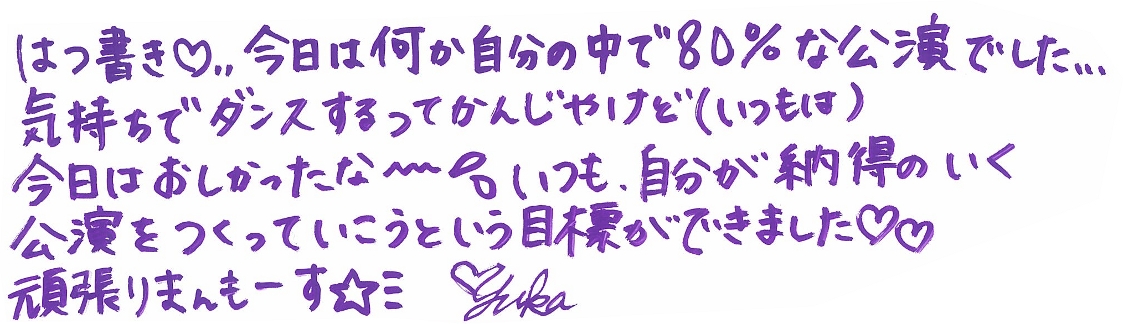 はつ書き♡,, 今日は何か自分の中で80%な公演でした...
気持ちでダンスするってかんじやけど(いつもは)
今日はおしかったな〜 いつも、自分が納得のいく
公演をつくっていこうという目標ができました♡♡
頑張りまんもーす☆ミ ♡Yuka